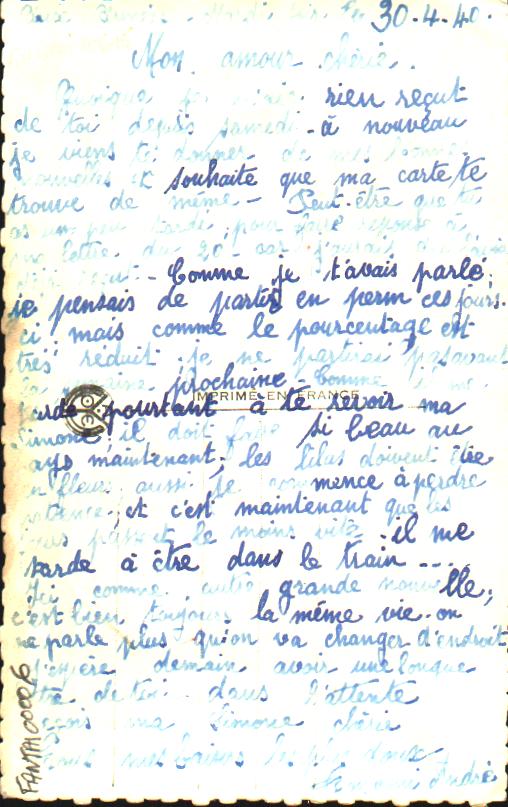 30-4-40.
Mon amour chérie.
Puisque je n'ai rien reçut
de toi depuis samedi - à nouveau
je viens te donner de mes bonnes
nouvelles et souhaite que ma carte te
trouve de même - Peut-être que tu
as un peu tardé pour faire réponse à
ma lettre du 20 - car j'aurais du
reçut - Comme je t'avais parlé,
je pensais de partir en perm ces jours-
ci, mais comme le pourcentage est
très réduit je ne partirai pas avant
la prochaine. Comme il me
tarde pourtant à te revoir ma
IMPRIMÉ EN FRANCE
Simone, il doit faire si beau au
pays maintenant, les lilas doivent être
en fleur, aussi je commence à perdre
patience, et c'est maintenant que les
jours passent le moins vite - il me
tarde à être dans le train ...
Ici comme autre grande nouvelle,
c'est bien toujours la même vie - on
ne parle plus qu'on va changer d'endroit
J'espère demain avoir une longue
lettre de toi - dans l'attente
reçois ma Simone chérie
tous mes baisers les plus doux
André
FANTA00006